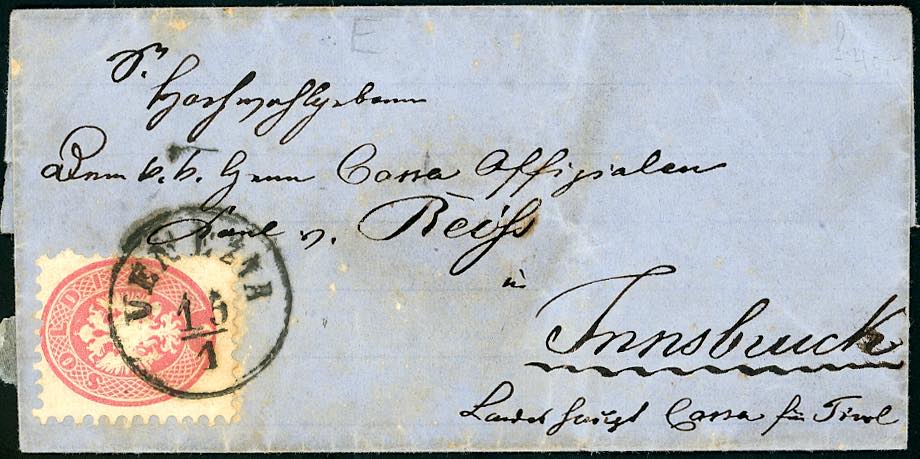 Sr.
Hochwohlgeboren
Dem k. k. Herrn Cassa Offizialen
Karl v. Reiss
in
Innsbruck
Landeshaupt Cassa für Tirol
VENEZIA
15
1
SOLDI
E